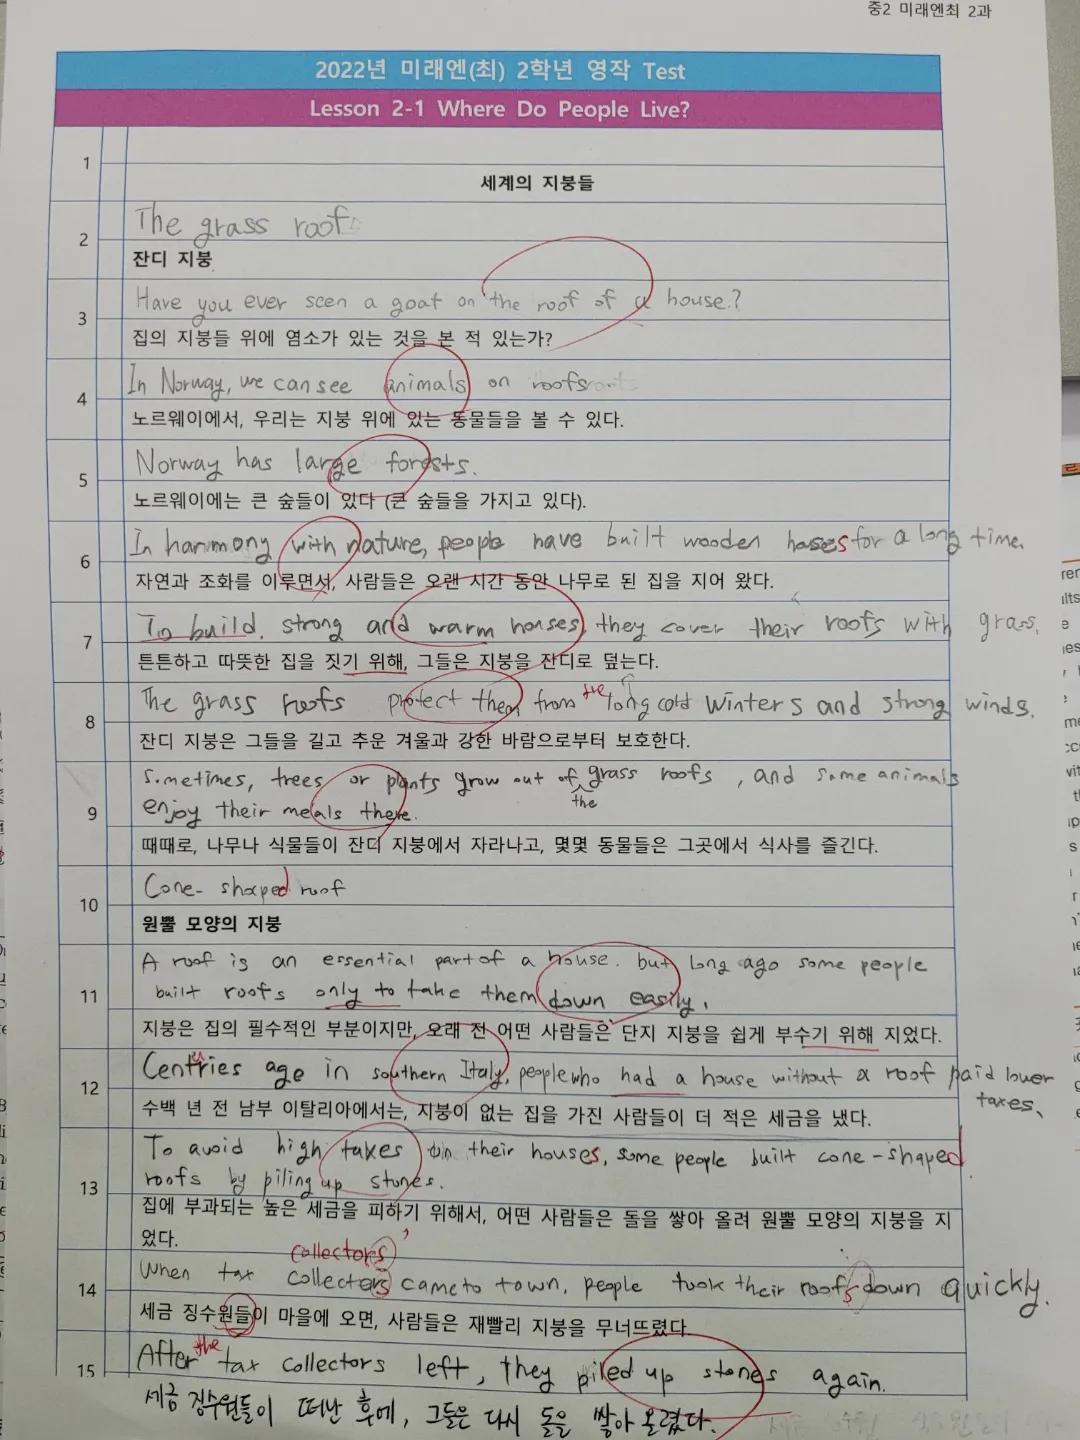 중2 미래엔최 2과
2022년 미래엔(최) 2학년 영작 Test
Lesson 2-1 Where Do People Live?
1
세계의 지붕들
The grass roof
2
잔디 지붕
Have you ever seen a goat on the roof of a house?
3
집의 지붕들 위에 염소가 있는 것을 본 적 있는가?
In Norway, we can see animals on roofs
4
노르웨이에서, 우리는 지붕 위에 있는 동물들을 볼 수 있다.
Norway has large forests.
5
노르웨이에는 큰 숲들이 있다 (큰 숲들을 가지고 있다).
In harmony with nature, people have built wooden houses for a long time.
6
자연과 조화를 이루면서, 사람들은 오랜 시간 동안 나무로 된 집을 지어 왔다.
To build. strong and warm houses, they cover their roofs with grass.
7
튼튼하고 따뜻한 집을 짓기 위해, 그들은 지붕을 잔디로 덮는다.
The grass roofs protect them from the long cold winters and strong winds.
8
잔디 지붕은 그들을 길고 추운 겨울과 강한 바람으로부터 보호한다.
Sometimes, trees or plants grow out of the grass roofs, and some animals
enjoy their meals there.
9
때때로, 나무나 식물들이 잔디 지붕에서 자라나고, 몇몇 동물들은 그곳에서 식사를 즐긴다.
Cone-shaped roof
10
원뿔 모양의 지붕
A roof is an essential part of a house. but long ago some people
built roofs only to take them down easily.
11
지붕은 집의 필수적인 부분이지만, 오래 전 어떤 사람들은 단지 지붕을 쉽게 부수기 위해 지었다.
Centuries age in southern Italy, people who had a house without a roof paid lower
taxes.
12
수백 년 전 남부 이탈리아에서는, 지붕이 없는 집을 가진 사람들이 더 적은 세금을 냈다.
To avoid high taxes on their houses, some people built cone-shaped
roofs by piling up stones.
13
집에 부과되는 높은 세금을 피하기 위해서, 어떤 사람들은 돌을 쌓아 올려 원뿔 모양의 지붕을 지
었다.
collectors
When tax collectors came to town, people took their roofs down quickly.
14
세금 징수원들이 마을에 오면, 사람들은 재빨리 지붕을 무너뜨렸다.
After the tax collectors left, they piled up stones again.
15
세금 징수원들이 떠난 후에, 그들은 다시 돌을 쌓아 올렸다.